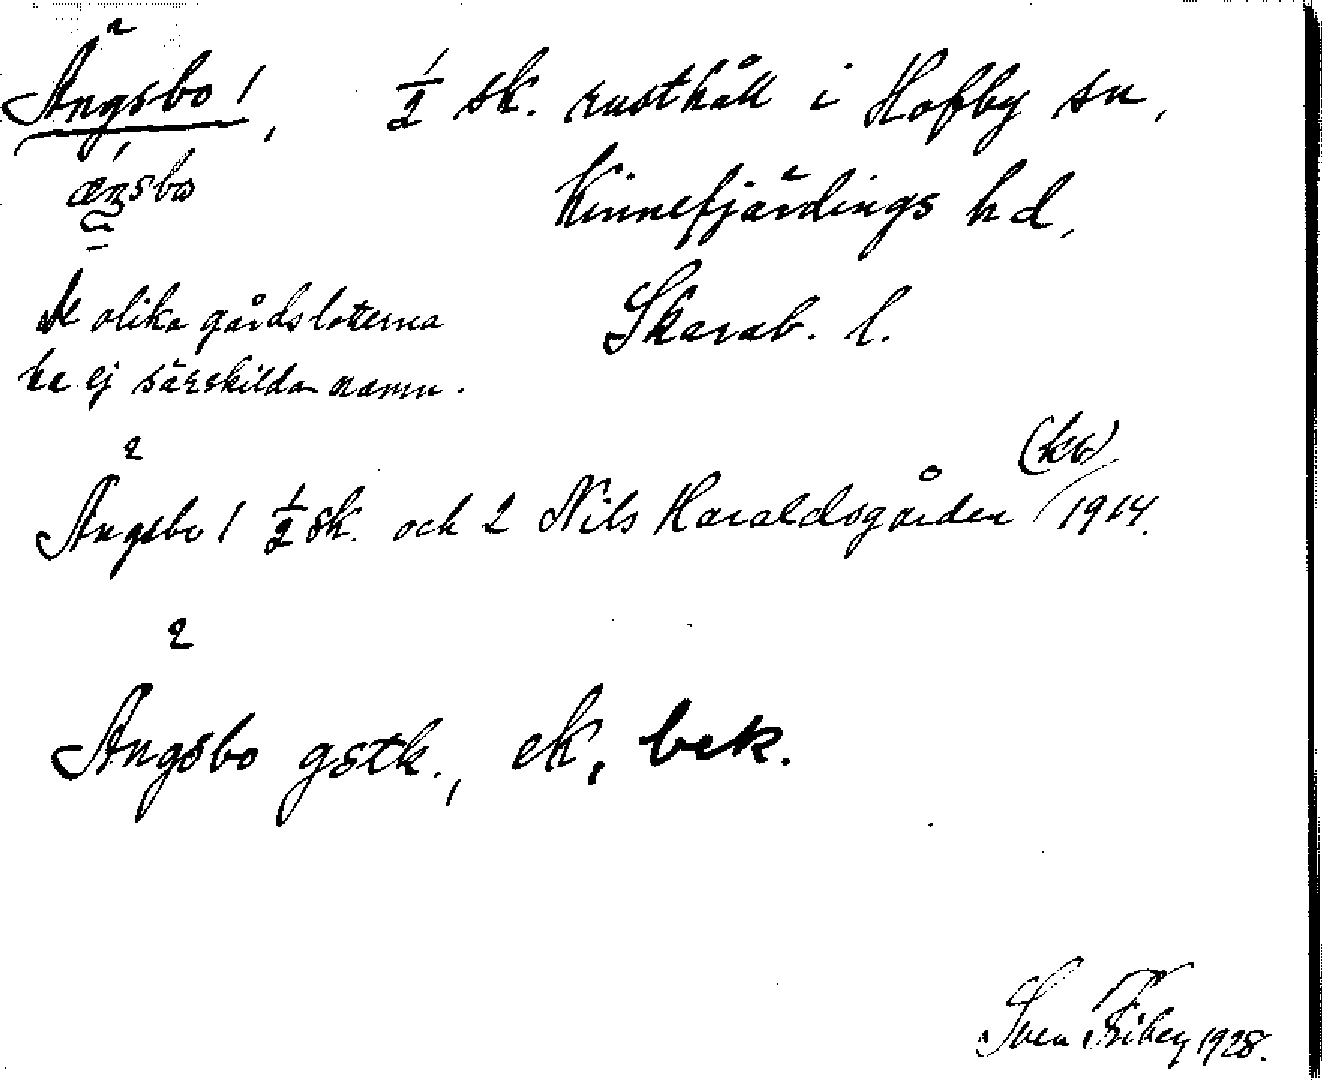 Ängsbo 1, 1/2 sk. rusthåll i Hofby sn,
æŋsbo Kinnefjärdings hd,
De olika gårdslotterna Skarab. l.
ha ej särskilda namn.
(kb)
Ängsbo 1 1/2 sk. och 2 Nils Haraldsgården 1914.
Ängsbo gstk., ek, bek.
Sven Friberg 1928.